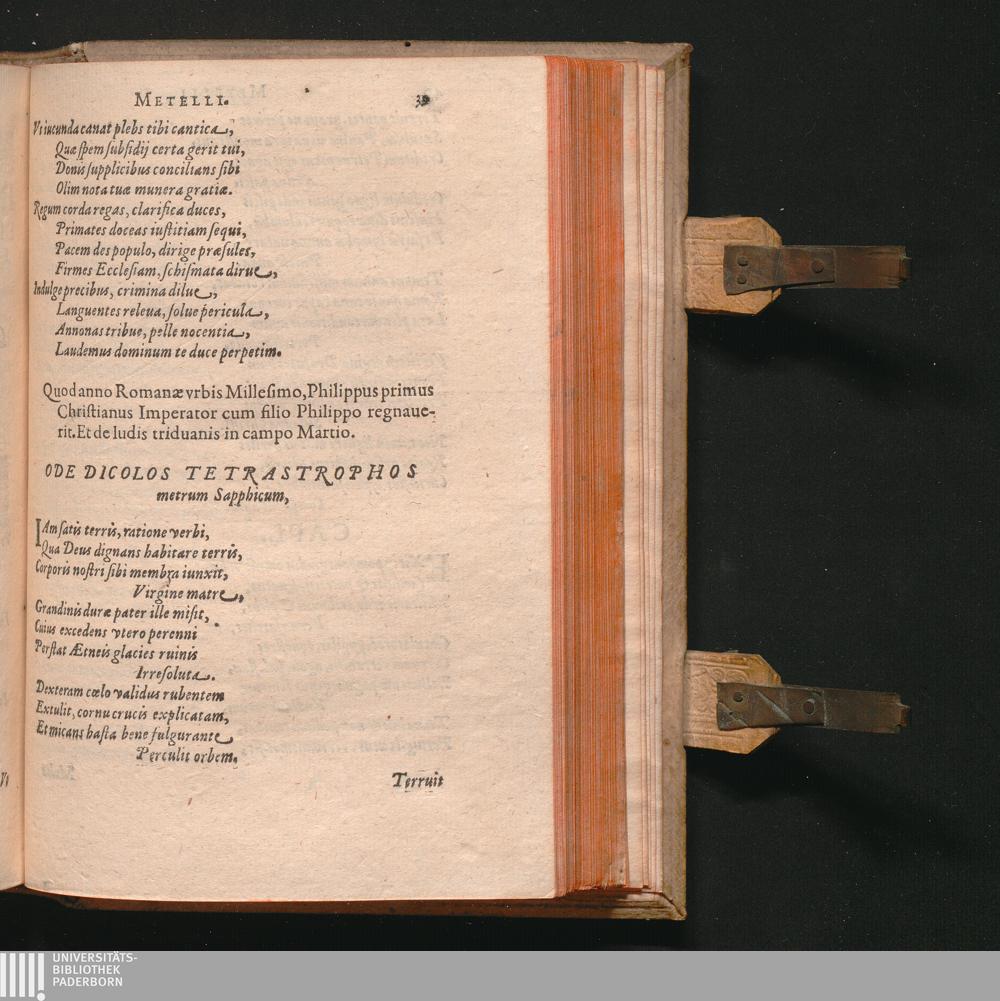 METELLI. 39
Vt iucunda canat plebs tibi cantica,
Quæ spem subsidij certa gerit tui,
Donis supplicibus concilians sibi
Olim nota tuæ munera gratiæ.
Regum corda regas, clarifica duces,
Primates doceas iustitiam sequi,
Pacem des populo, dirige præsules,
Firmes Ecclesiam, schismata dirue,
Indulge precibus, crimina dilue,
Languentes releua, solue pericula,
Annonas tribue, pelle nocentia,
Laudemus dominum te duce perpetim.
Quod anno Romanæ vrbis Millesimo, Philippus primus
Christianus Imperator cum filio Philippo regnaue-
rit. Et de ludis triduanis in campo Martio.
ODE DICOLOS TETRASTROPHOS
metrum Sapphicum,
IAm satis terris, ratione verbi,
Qua Deus dignans habitare terris,
Corporis nostri sibi membra iunxit,
Virgine matre,
Grandinis duræ pater ille misit,
Cuius excedens vtero perenni
Perstat Ætneis glacies ruinis
Irresoluta.
Dexteram cœlo validus rubentem
Extulit, cornu crucis explicatam,
Et micans hasta bene fulgurante
Perculit orbem,
Terruit
UNIVERSITÄTS-
BIBLIOTHEK
PADERBORN